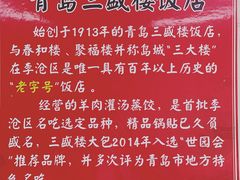 青岛三盛楼饭店
始创于1913年的青岛三盛楼饭店,
与春和楼、聚福楼并称岛城“三大楼”
在李沧区是唯一具有百年以上历史的
“老字号”饭店。
经营的羊肉灌汤蒸饺,是首批李
沧区名吃选定品种,精品锅贴已久负
盛名,三盛楼大包2014年入选“世园会”
推荐品牌,并多次评为青岛市地方特
色名吃